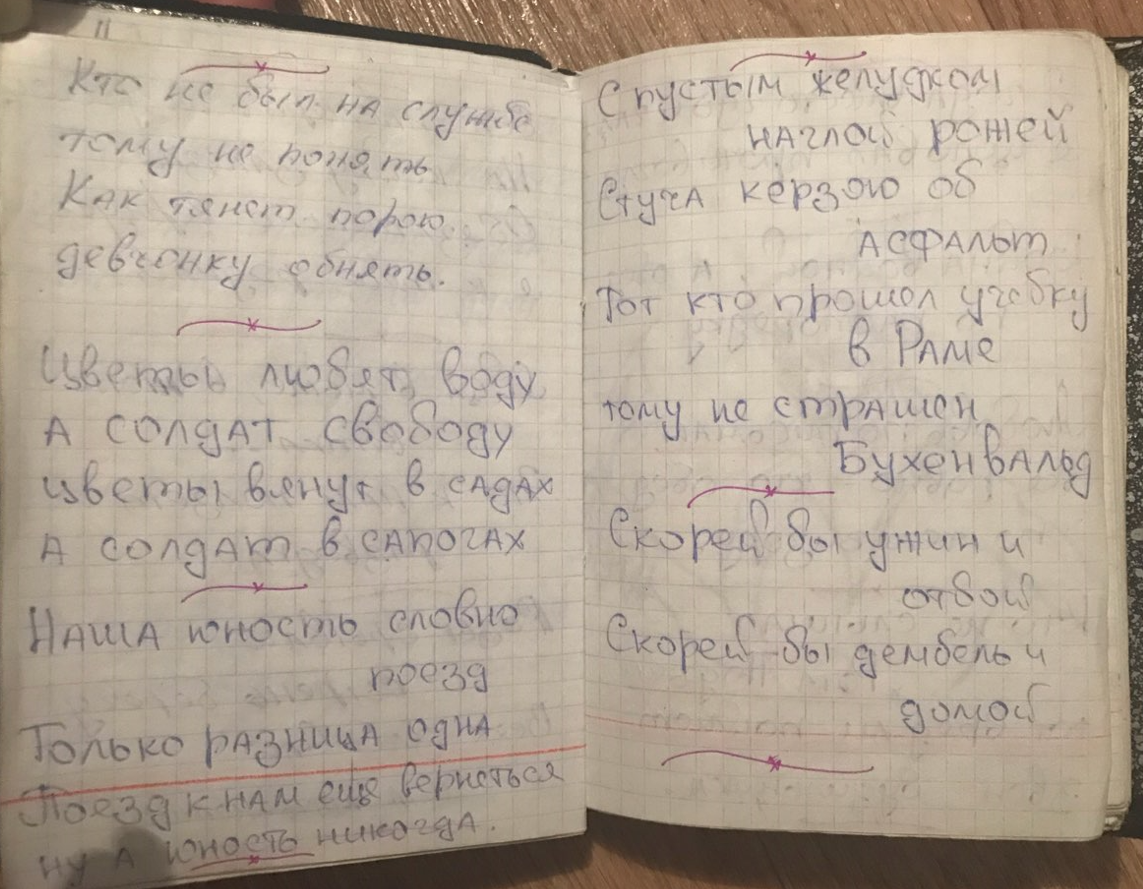 Кто не был на службе
тому не понять
Как тянет порою
девчонку обнять.
Цветы любят воду
А солдат свободу
цветы вянут в садах
А солдат в сапогах
Наша юность словно
поезд
Только разница одна
Поезд к нам ещё вернеться
ну а юность никогда.
С пустым желудком
наглой рожей
Стуча керзою об
асфальт
Тот кто прошол учебку
в Раме
тому не страшен
Бухенвальд
Скорей бы ужин и
отбой
Скорей бы дембель и
домой